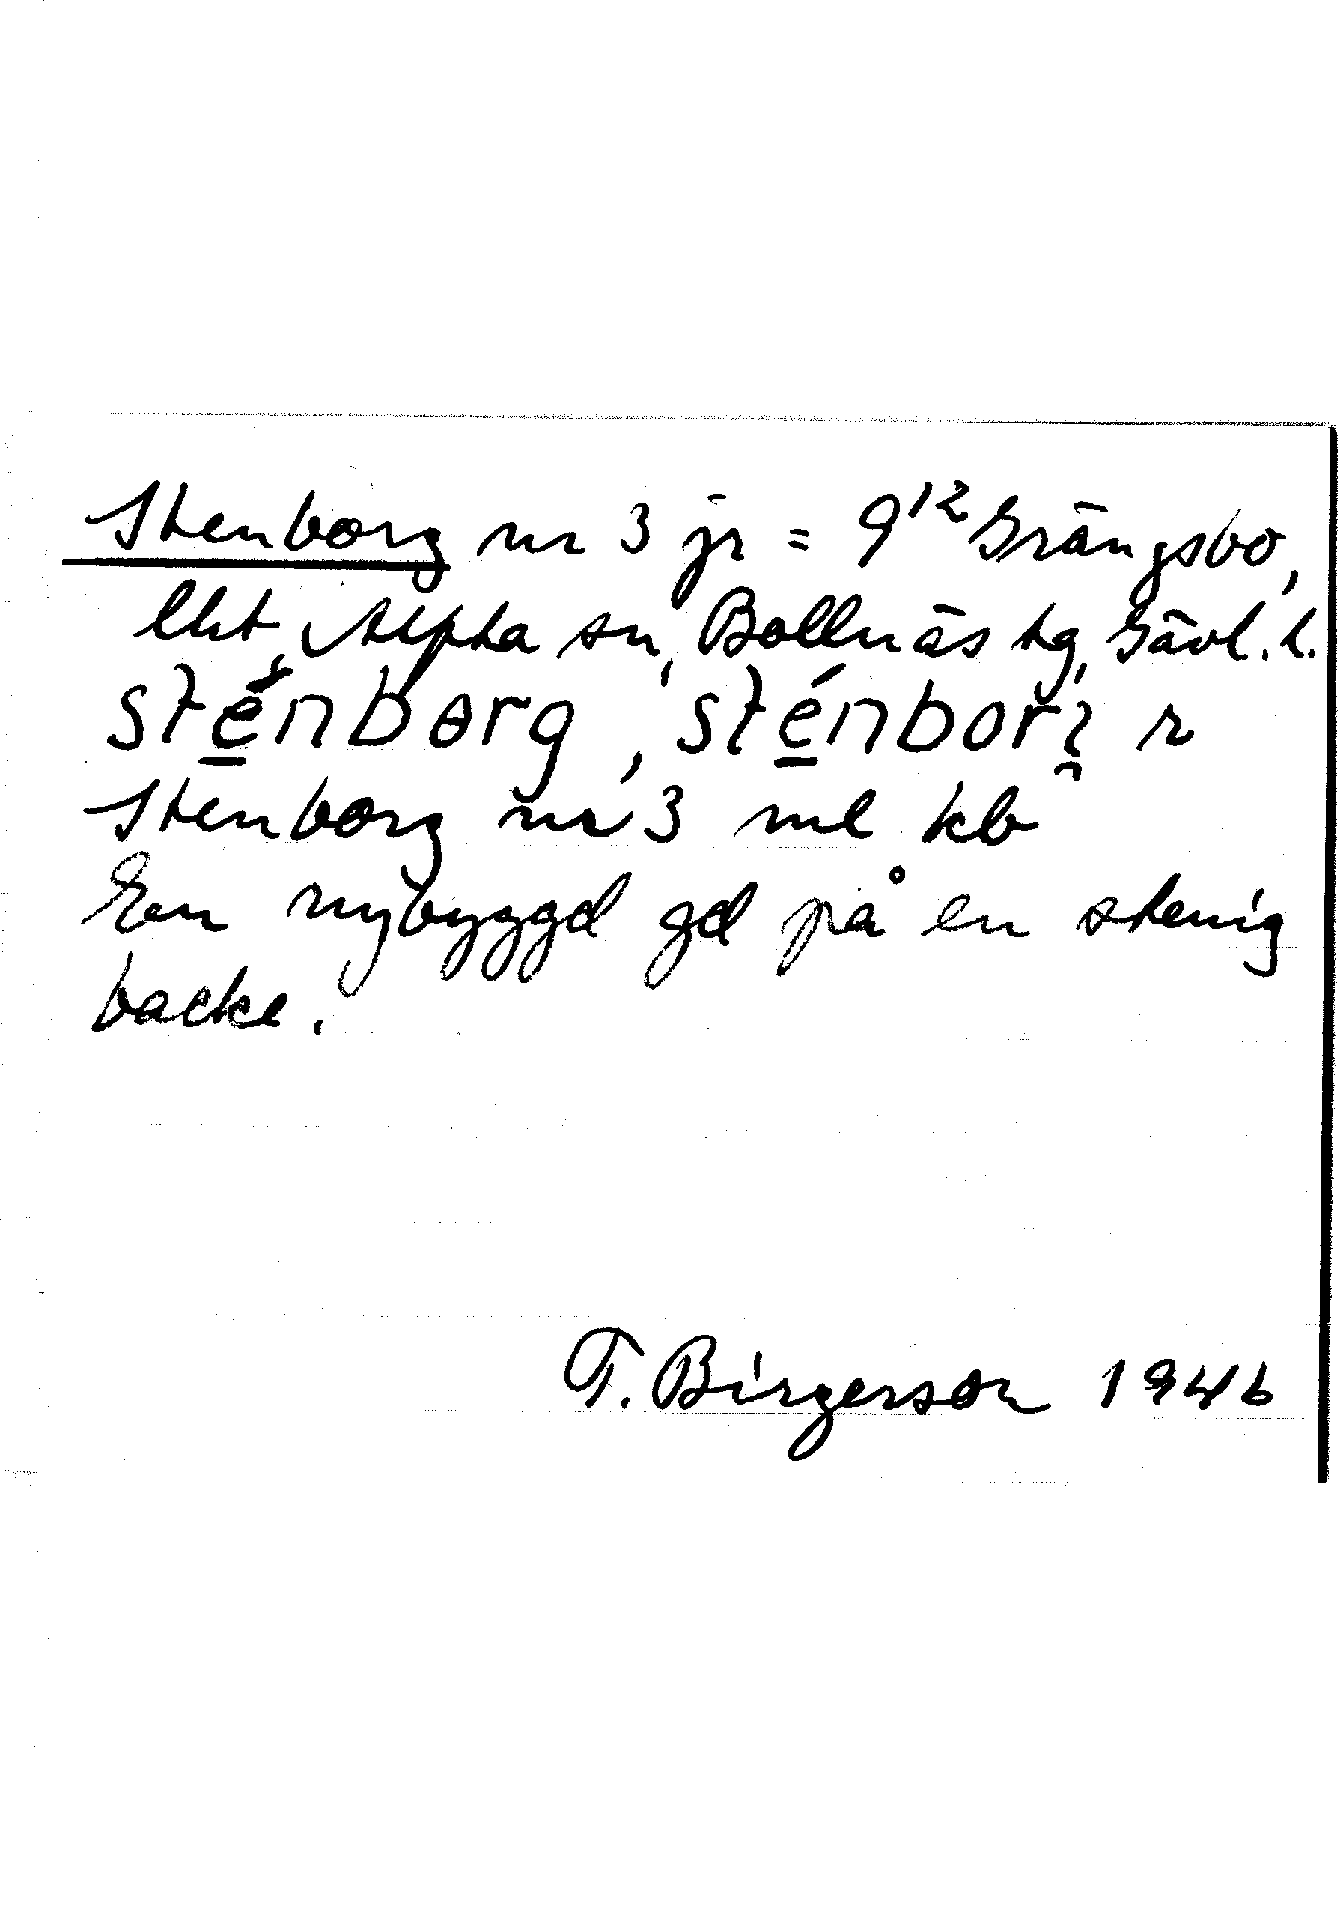 Stenborg nr 3 jr = 9¹² Grängsbo,
lht, Alfta sn, Bollnäs tg, Gävl. l.
sténbɵrg, sténborı̯ r
Stenborg nr 3 ml kb
En nybyggd gd på en stenig
backe.
T. Birgerson 1946